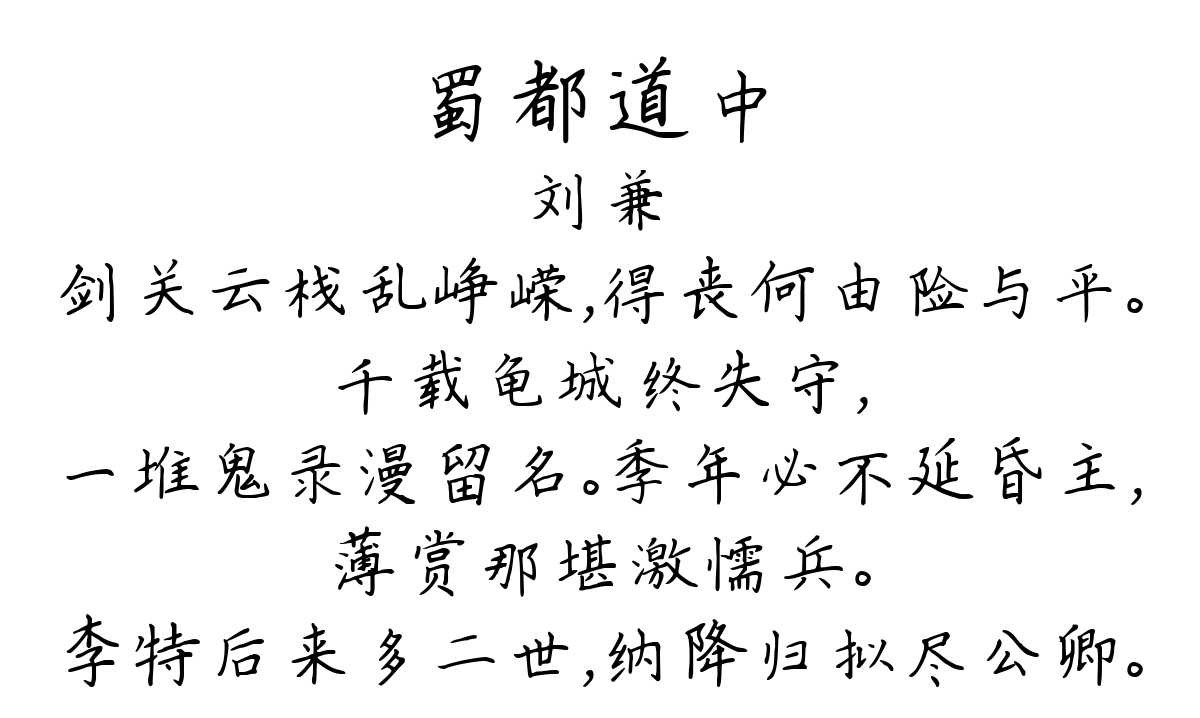 蜀都道中
刘兼
剑关云栈乱峥嵘,得丧何由险与平。
千载龟城终失守,
一堆鬼录漫留名。季年必不延昏主,
薄赏那堪激懦兵。
李特后来多二世,纳降归拟尽公卿。